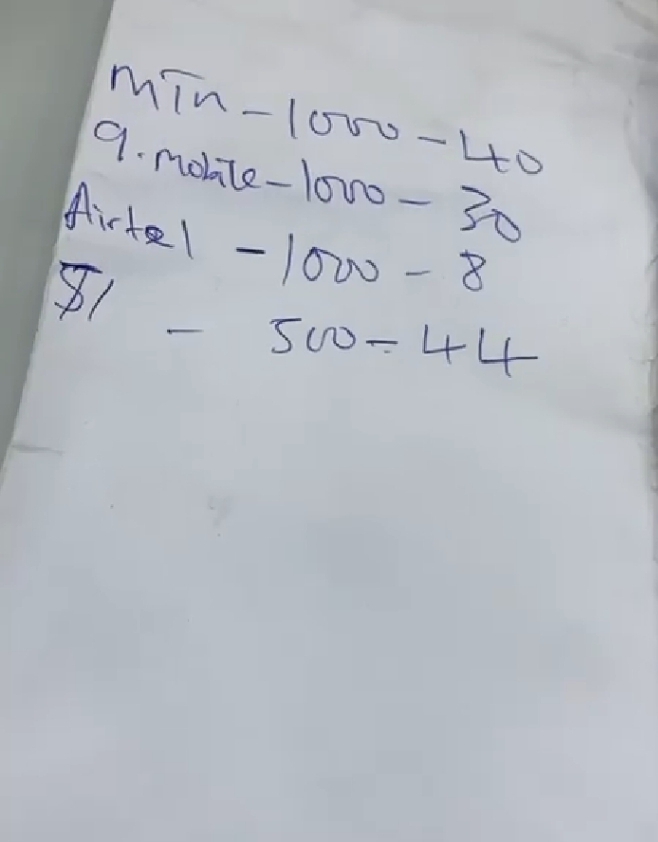 MTn - 1000 - 40
9.mobile - 1000 - 30
Airtel - 1000 - 8
- 500 - 44